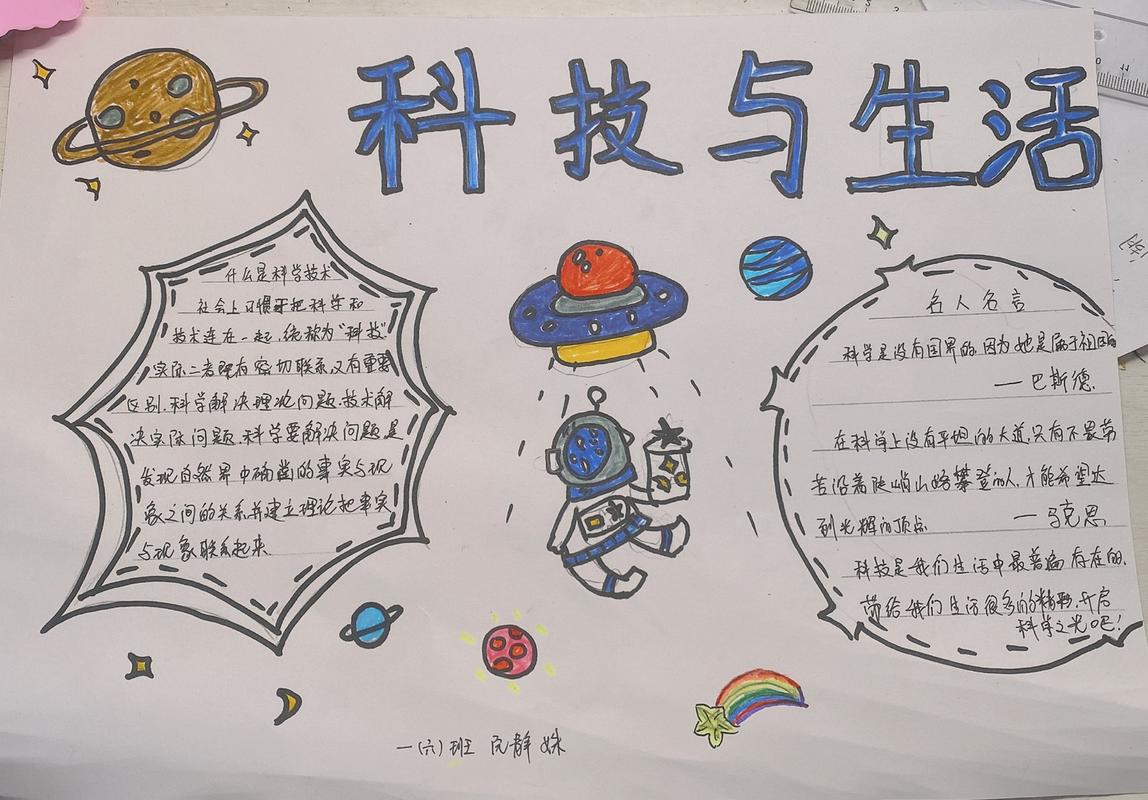 科技与生活
什么是科学技术
社会上习惯于把科学和
技术连在一起,统称为“科技”
实际二者既有密切联系,又有重要
区别.科学解决理论问题.技术解
决实际问题.科学要解决问题是
发现自然界中确凿的事实与现
象之间的关系,并建立理论把事实
与现象联系起来.
名人名言
科学是没有国界的,因为她是属于祖国的
一巴斯德.
在科学上没有平坦的大道,只有不畏劳
苦沿着陡峭山路攀登的人,才能希望达
到光辉的顶点
一马克思
科技是我们生活中最普遍存在的.
带给我们生活很多的精彩,开启
科学之光吧!
一(六)班 阮静姝